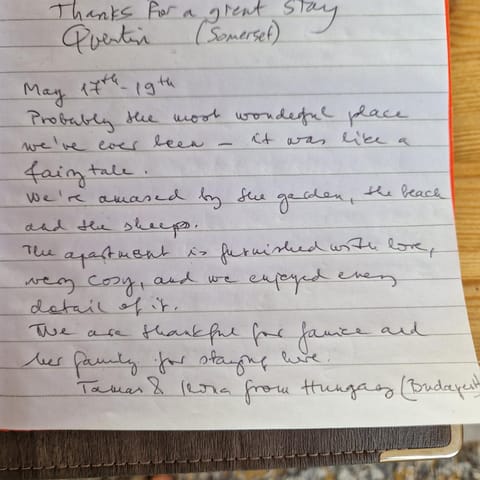 Thanks for a great stay
Quentin (Somerset)
May 17th - 19th
Probably the most wonderful place
we've ever been - it was like a
fairytale.
We're amased by the garden, the beach
and the sheeps.
The apartment is furnished with love,
very cosy, and we enjoyed every
detail of it.
We are thankful for Janice and
her family for staying here.
Tamas & from Hungary (Budapest)